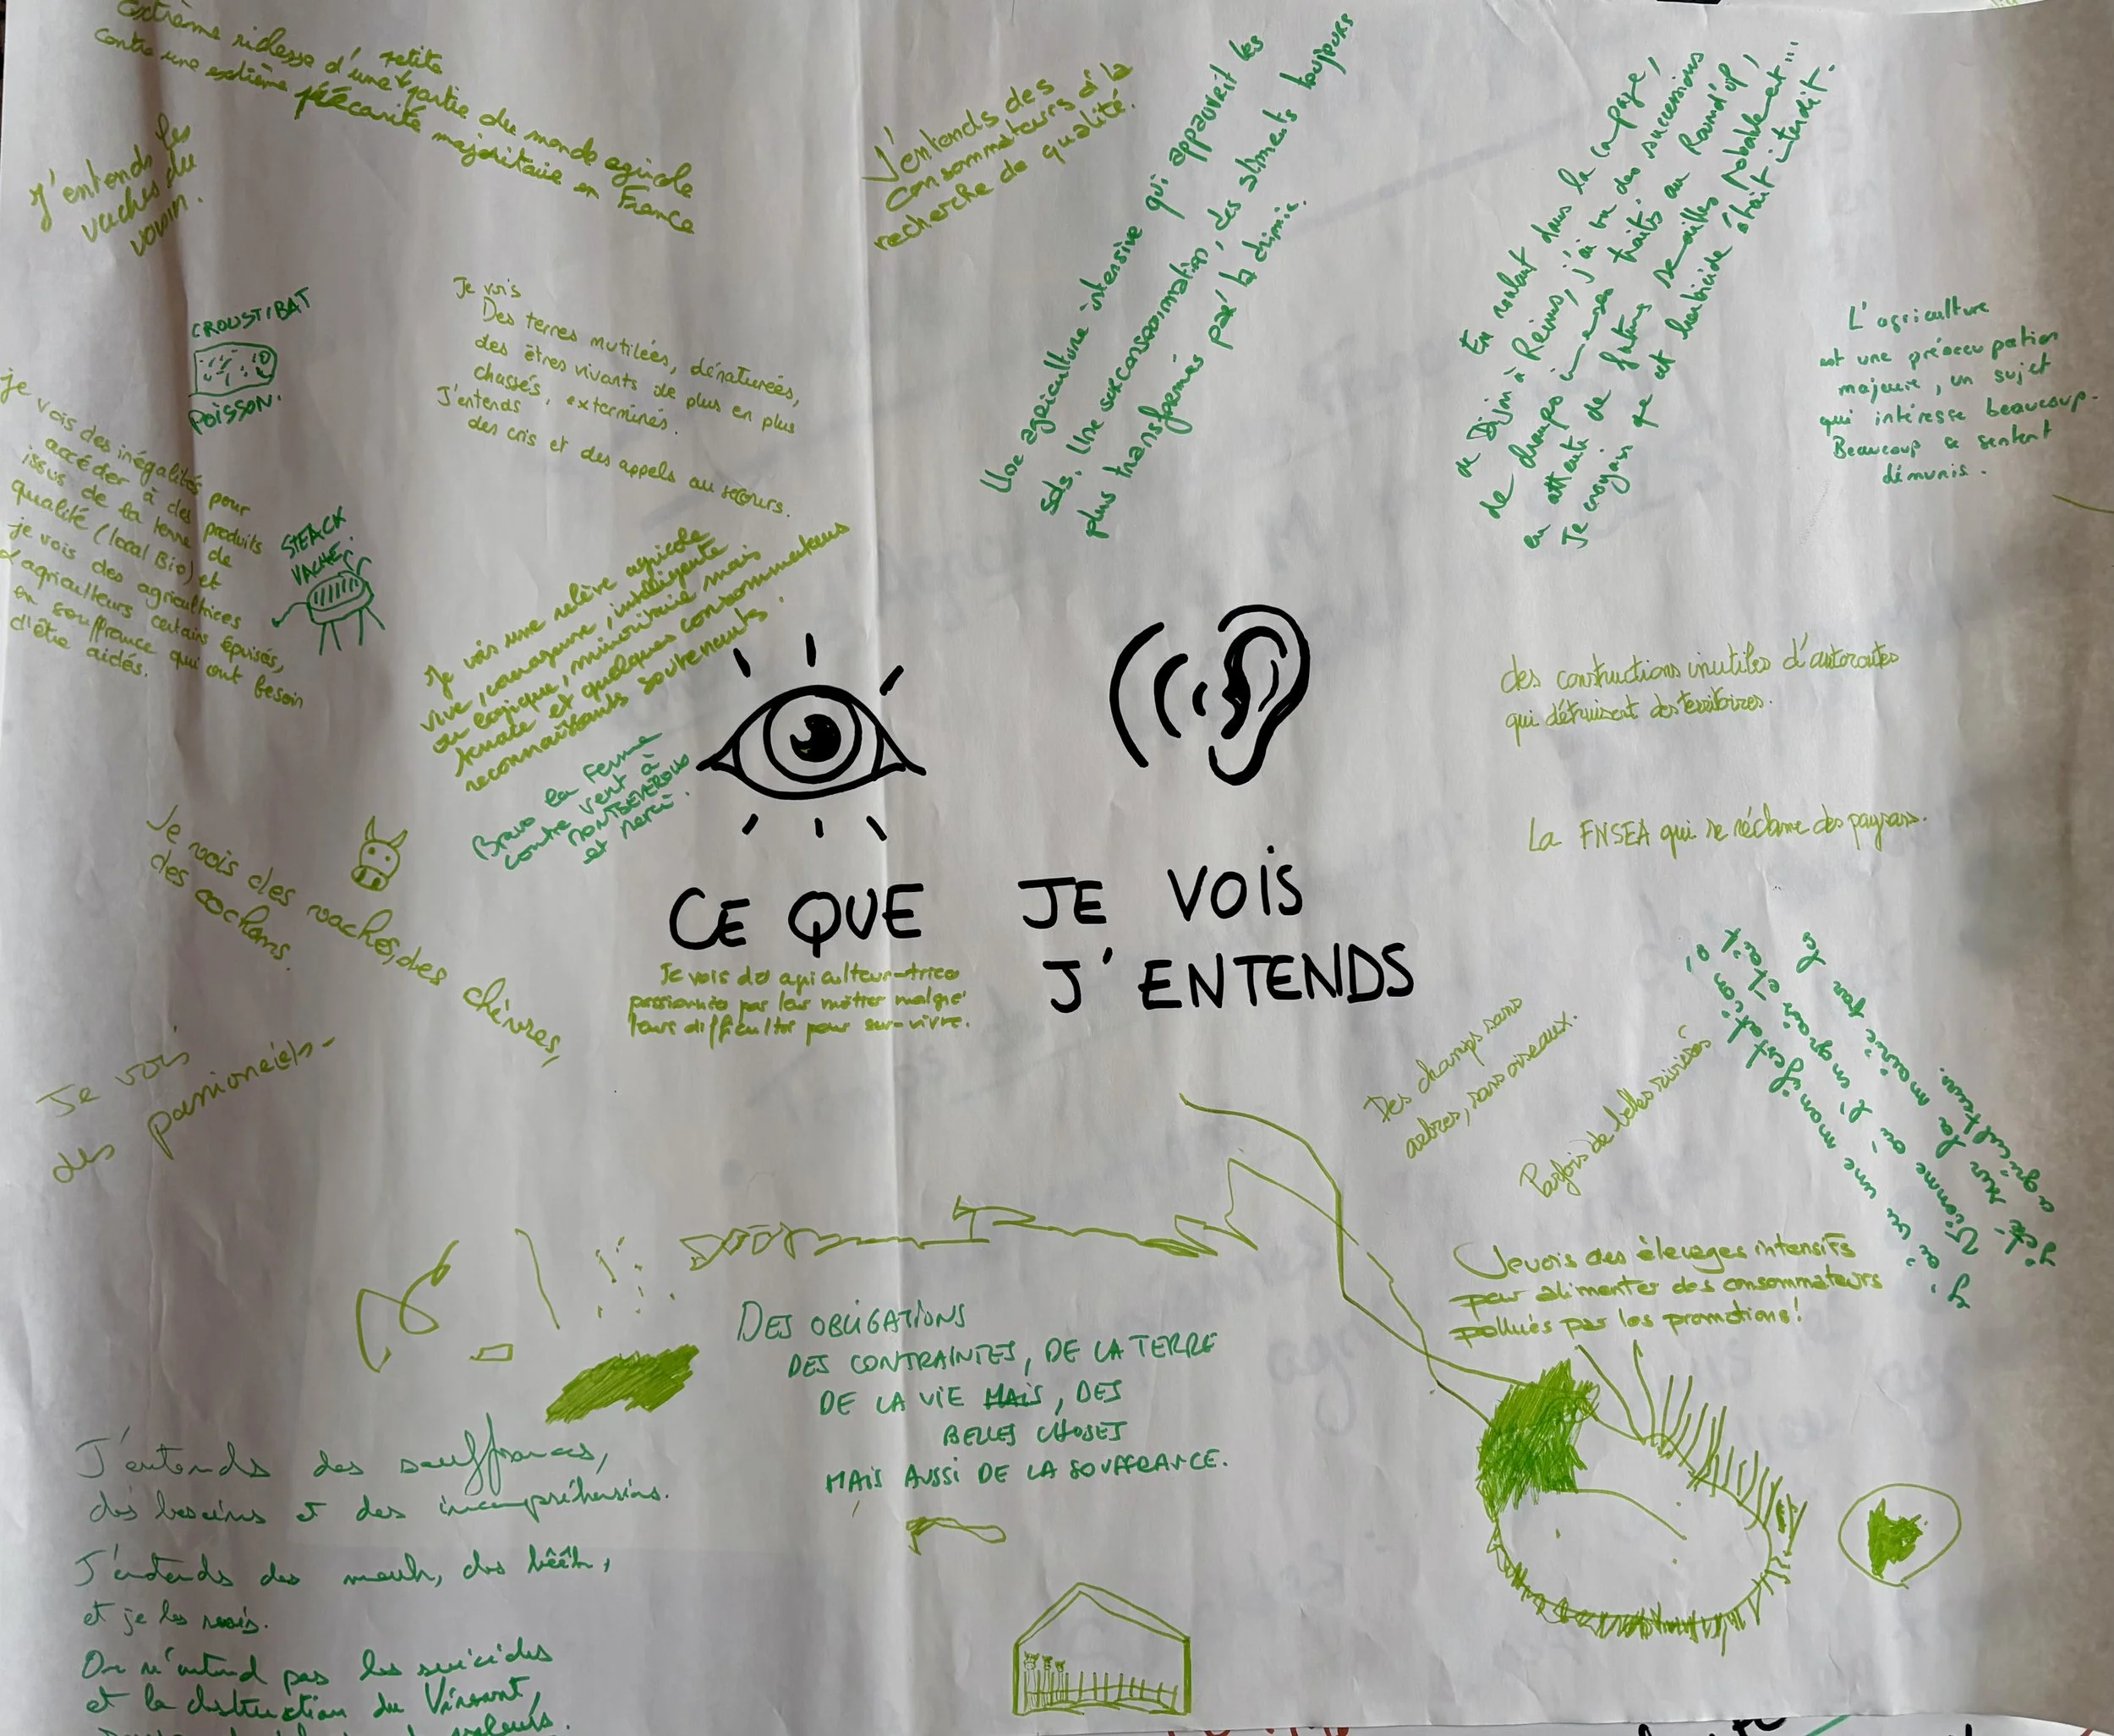 Extrême richesse d'une petite partie du monde agricole
contre une extrême précarité majoritaire en France
J'entends les
vaches du
voisin.
J'entends des
consommateurs à la
recherche de qualité.
Une agriculture intensive qui appauvrit les
sols. Une surconsommation, des aliments toujours
plus transformés par la chimie.
En roulant dans la campagne,
de Dijon à Reims, j'ai vu des successions
de champs immenses traités au Round'up,
en attente de futures semailles probablement...
Je croyais que cet herbicide était interdit.
L'agriculture
est une préoccupation
majeure, un sujet
qui intéresse beaucoup.
Beaucoup se sentent
démunis.
CROUSTIBAT
POISSON.
Je vois
Des terres mutilées, dénaturées,
des êtres vivants de plus en plus
chassés, exterminés.
J'entends
des cris et des appels au secours.
je vois des inégalités pour
accéder à des produits
issus de la terre de
qualité (local Bio) et
je vois des agricultrices
d'agriculteurs certains épuisés,
en souffrance qui ont besoin
d'être aidés.
STEACK
VACHE
Je vois une relève agricole
vive, courageuse, intelligente
ou logique, minoritaire mais
et quelques consommateurs
reconnaissants soutenants.
Bravo la Ferme
contre vent à
MONTSEVEROUX
et merci.
des constructions inutiles d'autoroutes
qui détruisent des territoires.
La FNSEA qui se réclame des paysans.
Je vois des vaches, des chèvres,
des cochons.
CE QUE JE VOIS
J'ENTENDS
Je vois des agriculteur-trice
passionnés par leur métier malgré
leurs difficultés pour sur-vivre.
Je vois
des passionné(e)s-
Des champs sans
arbres, sans oiseaux.
Parfois de belles rivières
J'ai vu une manifestation
agriculteurs.
Je vois des élevages intensifs
pour alimenter des consommateurs
pollués par les promotions!
DES OBLIGATIONS
DES CONTRAINTES, DE LA TERRE
DE LA VIE MAIS, DES
BELLES CHOSES
MAIS AUSSI DE LA SOUFFRANCE.
J'entends des souffrances,
des besoins et des incompréhensions.
J'entends des meuh, des bêêh,
et je les vois.
On n'entend pas les suicides
et la destruction du Vivant,
valeurs.